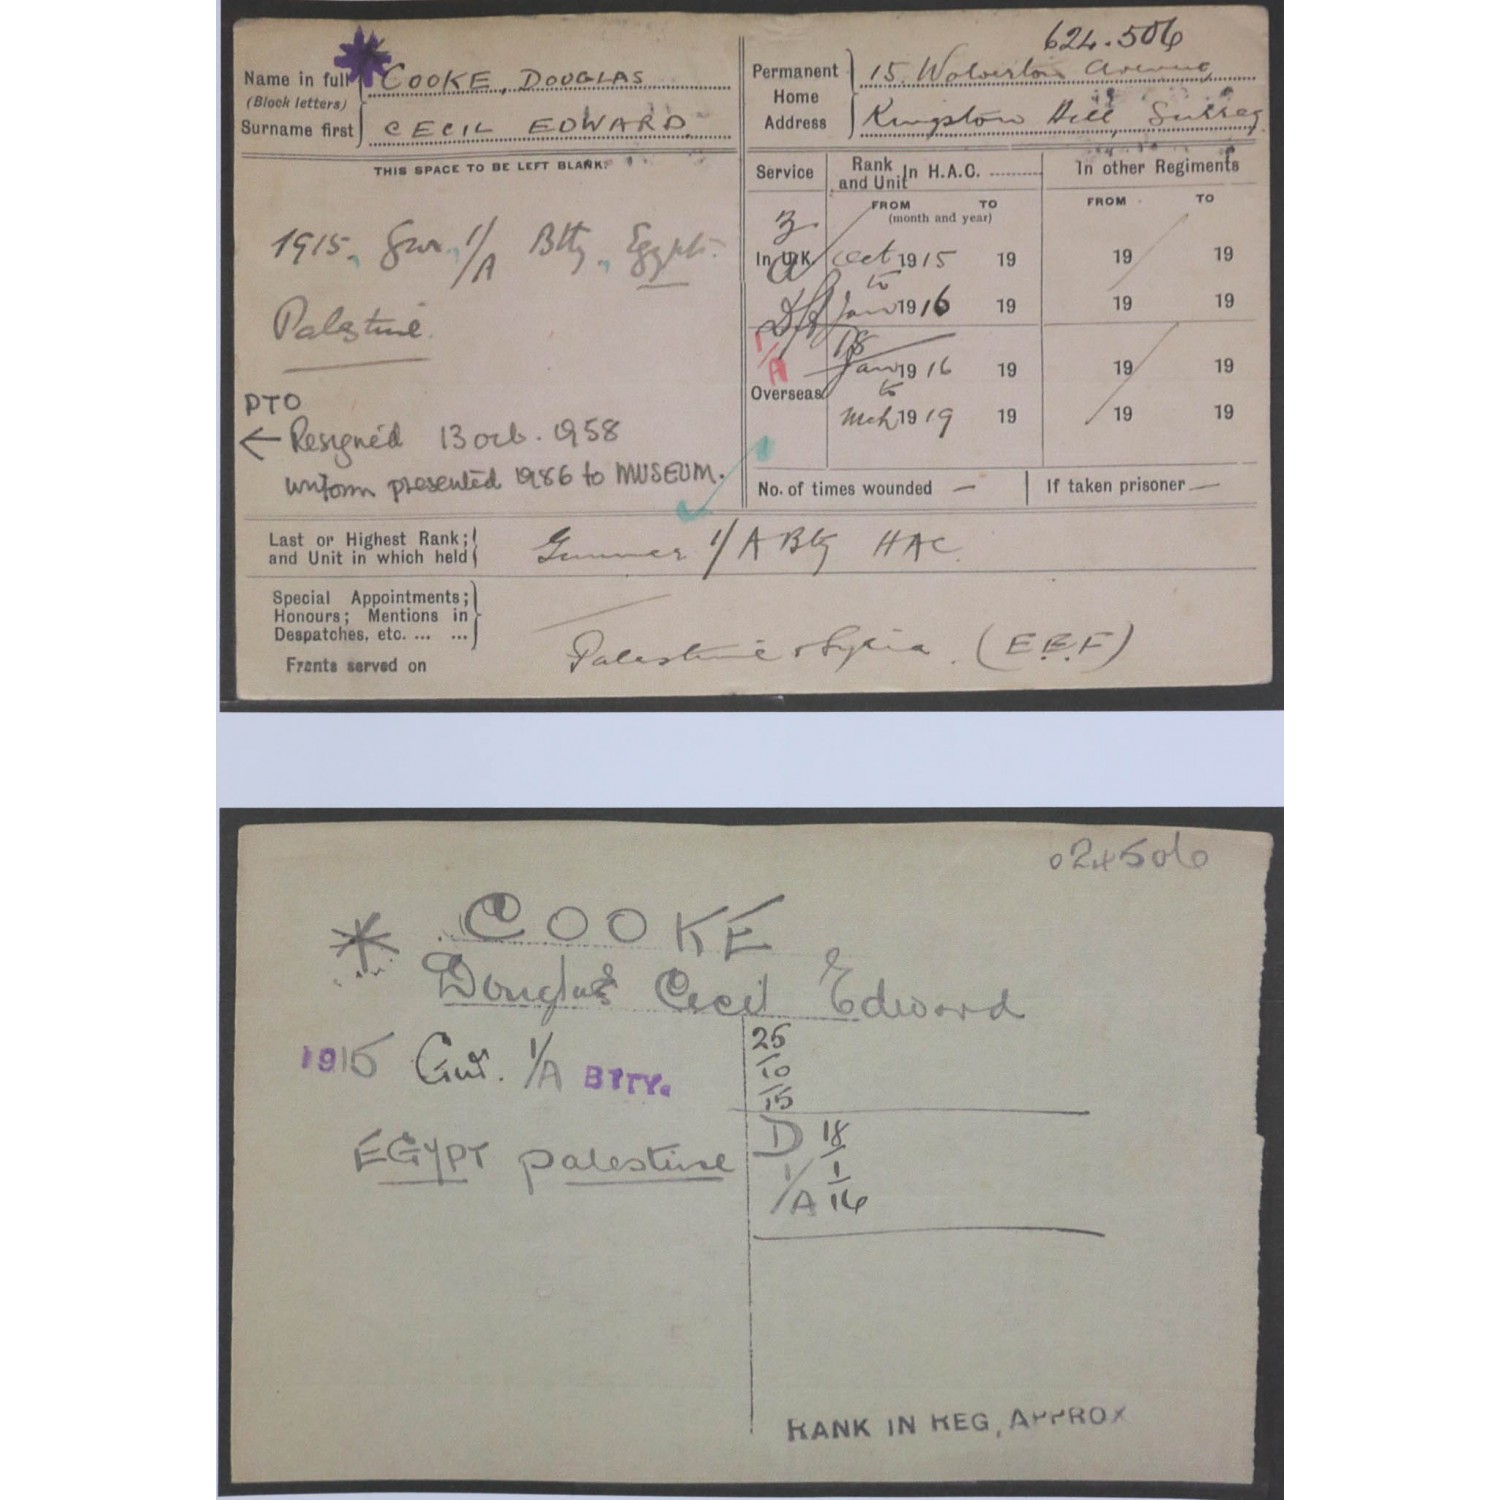 624.506
Name in full COOKE, DOUGLAS
(Block letters)
Surname first CECIL EDWARD
Permanent 15. Wolverton Avenue
Home
Address Kingston Hill, Surrey
THIS SPACE TO BE LEFT BLANK.
1915, Gnr, 1/A Btty, Egypt.
Palestine.
PTO
← Resigned 13 oct. 1958
uniform presented 1986 to MUSEUM.
Service Rank and Unit In H.A.C. In other Regiments
FROM TO FROM TO
(month and year)
In U.K. Oct 1915 19 19 19
to
Jan 1916 19 19 19
18
1/A Jan 1916 19 19 19
Overseas to
Mch 1919 19 19 19
No. of times wounded — If taken prisoner —
Last or Highest Rank;
and Unit in which held Gunner 1/A Bty HAC.
Special Appointments;
Honours; Mentions in
Despatches, etc. ... ...
Fronts served on Palestine & Syria. (E.E.F)
024506
* COOKE
Douglas Cecil Edward
1915 Gnr. 1/A BTTY.
25
10
15
EGYPT palestine
D 18
1
1/A 16
RANK IN REG, APPROX